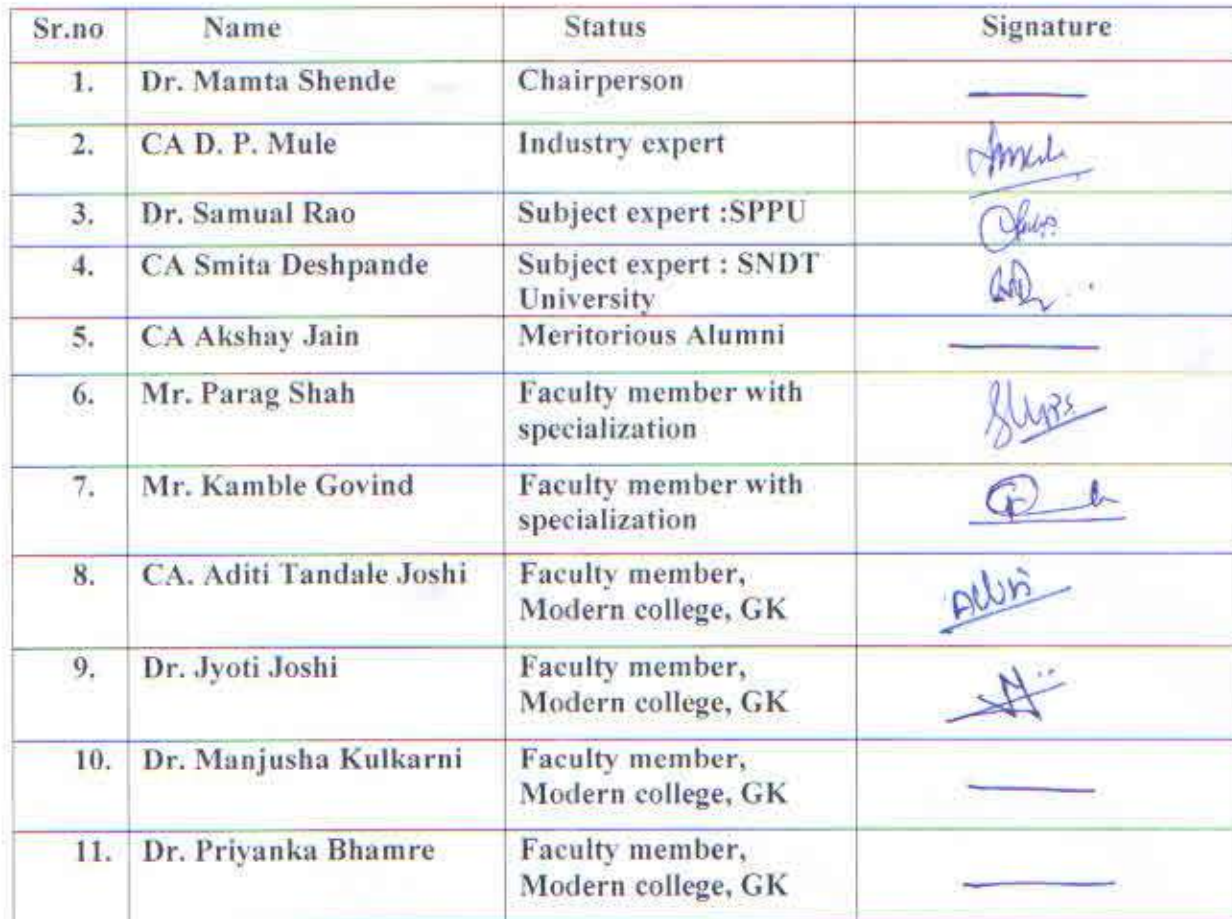 Sr.no Name Status Signature
1. Dr. Mamta Shende Chairperson
2. CA D. P. Mule Industry expert
3. Dr. Samual Rao Subject expert :SPPU
4. CA Smita Deshpande Subject expert : SNDT
University
5. CA Akshay Jain Meritorious Alumni
6. Mr. Parag Shah Faculty member with
specialization
7. Mr. Kamble Govind Faculty member with
specialization
8. CA. Aditi Tandale Joshi Faculty member,
Modern college, GK
9. Dr. Jyoti Joshi Faculty member,
Modern college, GK
10. Dr. Manjusha Kulkarni Faculty member,
Modern college, GK
11. Dr. Priyanka Bhamre Faculty member,
Modern college, GK